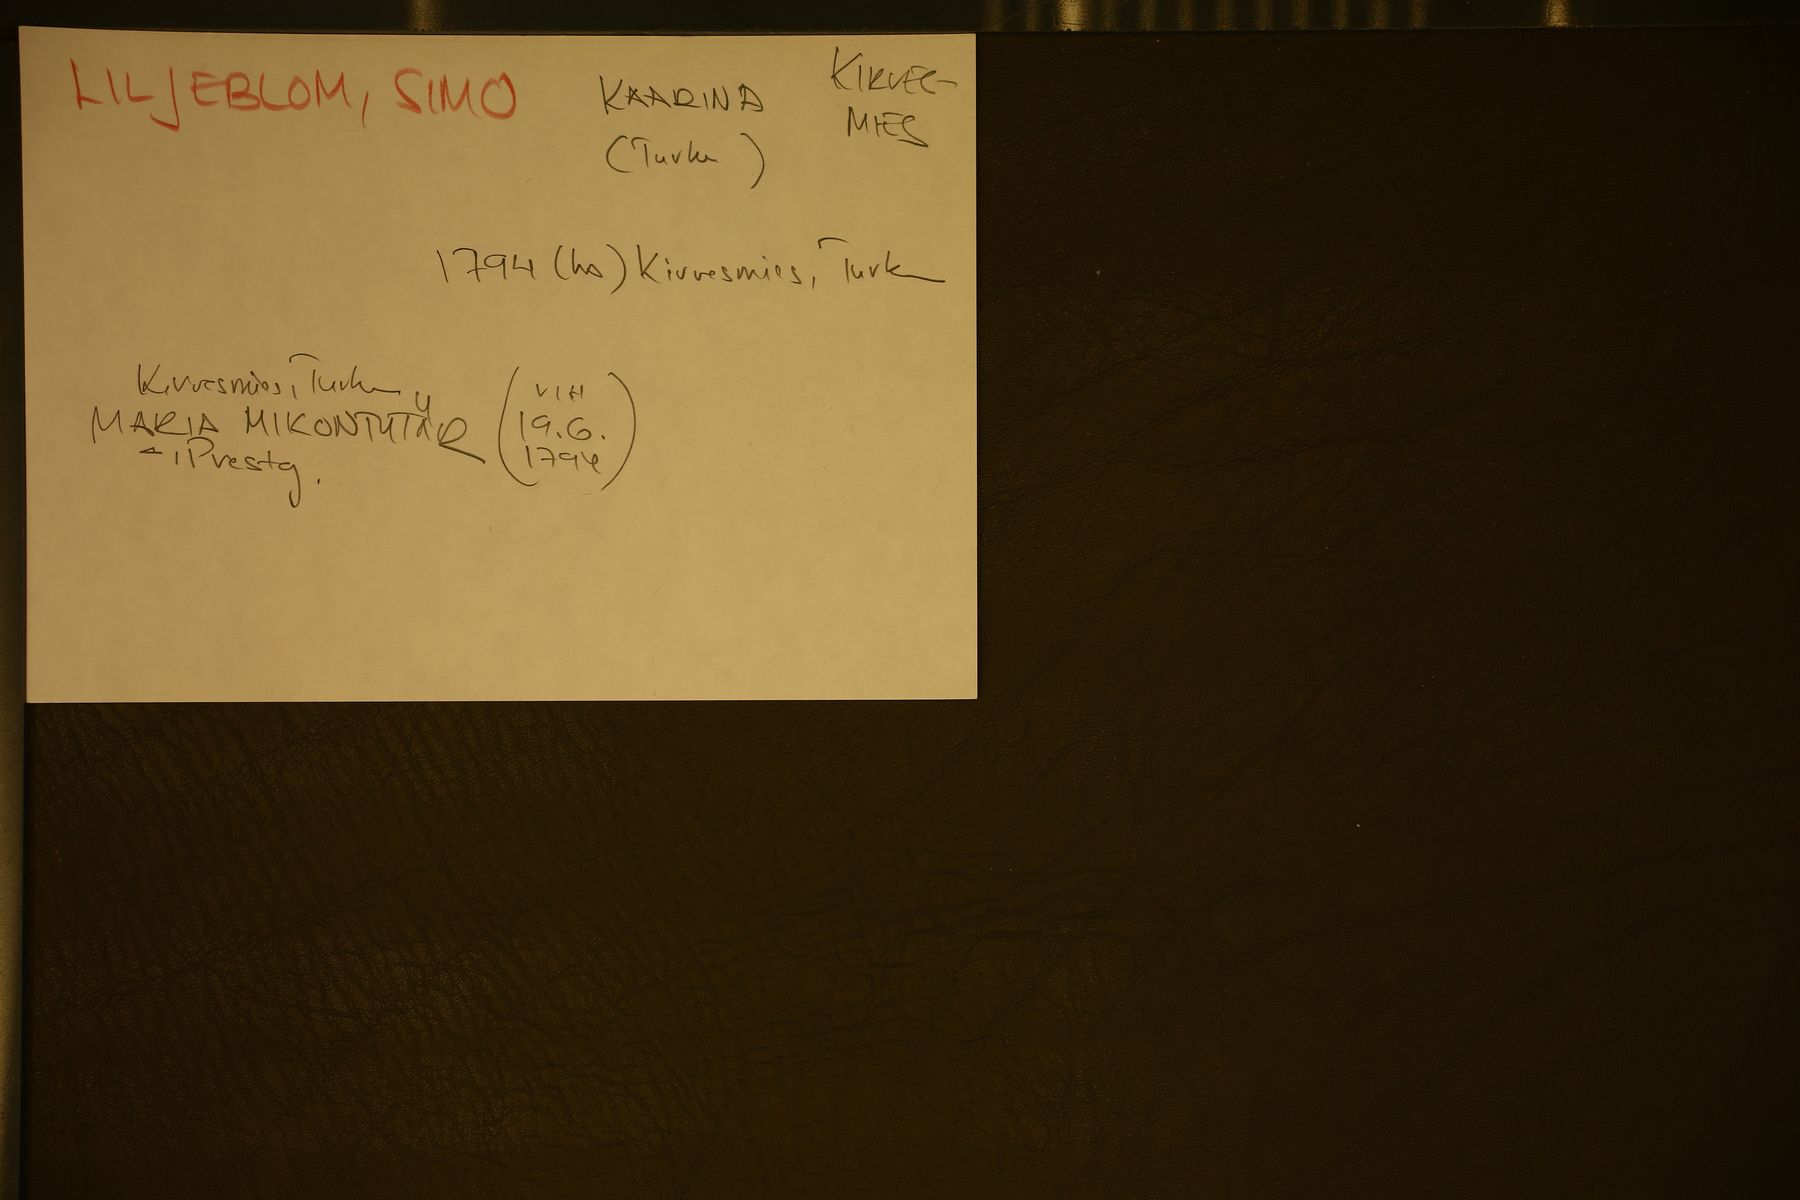 LILJEBLOM, SIMO
KAARINA
(Turku)
KIRVES-
MIES
1794 (ha) Kirvesmies, Turku
Kirvesmies, Turku
MARIA MIKONTYTÄR
Prestg.
(VIH
19.6.
1794)